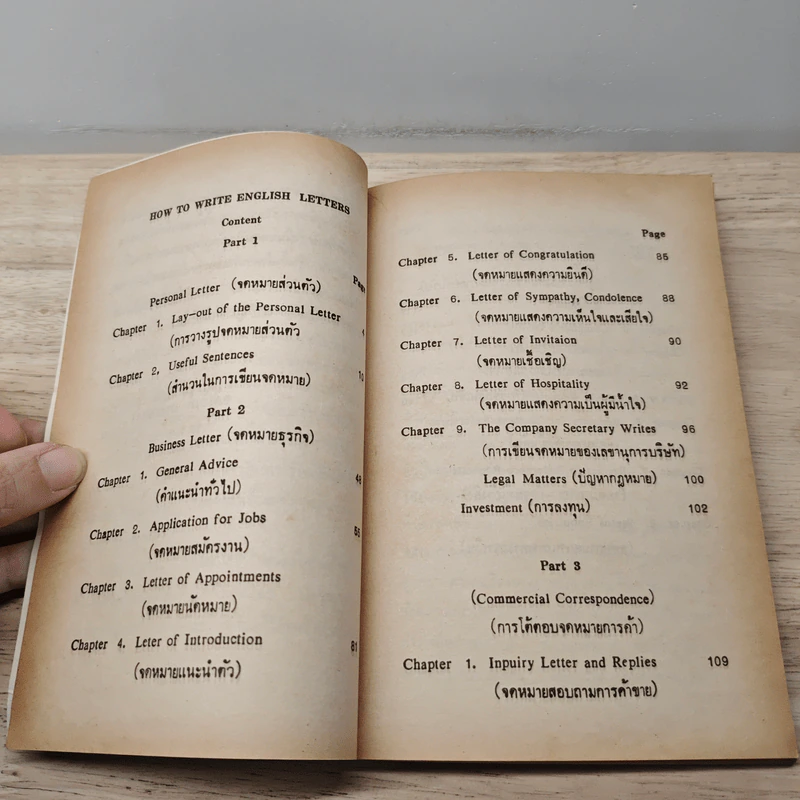 HOW TO WRITE ENGLISH LETTERS
Content
Part 1
Page
Personal Letter (จดหมายส่วนตัว)
Chapter 1. Lay-out of the Personal Letter
(การวางรูปจดหมายส่วนตัว
Chapter 2. Useful Sentences 10
(สำนวนในการเขียนจดหมาย)
Part 2
Business Letter (จดหมายธุรกิจ)
Chapter 1. General Advice
(คำแนะนำทั่วไป)
Chapter 2. Application for Jobs
(จดหมายสมัครงาน)
Chapter 3. Letter of Appointments
(จดหมายนัดหมาย)
Chapter 4. Leter of Introduction 81
(จดหมายแนะนำตัว)
Page
Chapter 5. Letter of Congratulation 85
(จดหมายแสดงความยินดี)
Chapter 6. Letter of Sympathy, Condolence 88
(จดหมายแสดงความเห็นใจและเสียใจ)
Chapter 7. Letter of Invitaion 90
(จดหมายเชื้อเชิญ)
Chapter 8. Letter of Hospitality 92
(จดหมายแสดงความเป็นผู้มีน้ำใจ)
Chapter 9. The Company Secretary Writes 96
(การเขียนจดหมายของเลขานุการบริษัท)
Legal Matters (ปัญหากฎหมาย) 100
Investment (การลงทุน) 102
Part 3
(Commercial Correspondence)
(การโต้ตอบจดหมายการค้า)
Chapter 1. Inpuiry Letter and Replies 109
(จดหมายสอบถามการค้าขาย)